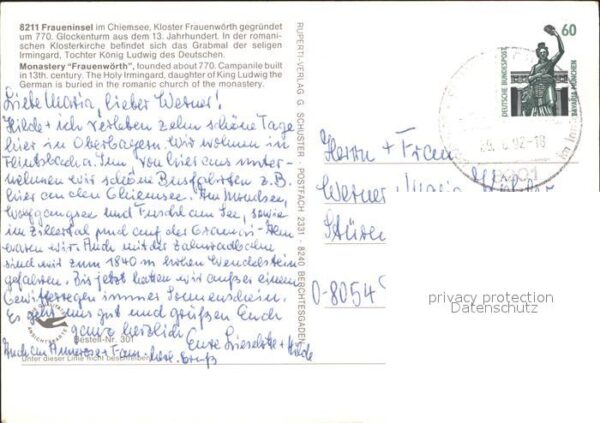 8211 Fraueninsel im Chiemsee, Kloster Frauenwörth gegründet
um 770. Glockenturm aus dem 13. Jahrhundert. In der romani-
schen Klosterkirche befindet sich das Grabmal der seligen
Irmingard, Tochter König Ludwig des Deutschen.
Monastery "Frauenwörth", founded about 770. Campanile built
in 13th. century. The Holy Irmingard, daughter of King Ludwig the
German is buried in the romanic church of the monastery.
Liebe Maria, lieber Werner!
Hilde + ich verleben zehn schöne Tage
hier in Oberbayern. Wir wohnen in
Flintsbach a. Inn. Von hier aus unter-
nehmen wir schöne Busfahrten z.B.
hier an den Chiemsee. Am Mondsee,
Wolfgangsee und Fuschl am See, sowie
im Zillertal und auf der
waren wir. Auch mit der Zahnradbahn
sind wir zum 1840 m hohen Wendelstein
gefahren. Bis jetzt hatten wir außer einem
Gewitterregen immer Sonnenschein.
Es geht uns gut und grüßen Euch
ganz herzlich Eure Liselotte + Hilde
Auch an Annerose + Fam. herzl. Gruß
ANSICHTSKARTE
Bestell-Nr. 301
Unter dieser Linie nicht beschreiben
RUPERTI-VERLAG G. SCHUSTER · POSTFACH 2331 · 8240 BERCHTESGADEN
60
DEUTSCHE BUNDESPOST
BAVARIA MÜNCHEN
6.92-18
im Inn
Herrn + Frau
Werner
O-8054
privacy protection
Datenschutz